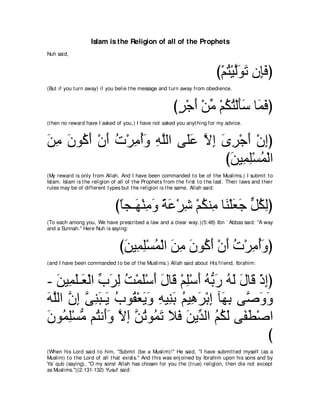 Islam is the Religion of all of the Prophets
Nuh said,
(فَإِن تَوَلَّيْتُمْ)
(But if you turn away) if you belie the message and turn away from obedience.
(فَمَا سَأَلْتُكُمْ مِّنْ أَجْرٍ)
(then no reward have I asked of you,) I have not asked you anything for my advice.
(إِنْ أَجْرِىَ إِلاَّ عَلَى اللَّهِ وَأُمِرْتُ أَنْ أَكُونَ مِنَ
الْمُسْلِمِينَ)
(My reward is only from Allah, And I have been commanded to be of the Muslims.) I submit to
Islam. Islam is the religion of all of the Prophets from the first to the last. Their laws and their
rules may be of different types but the religion is the same. Allah said:
(لِكُلٍّ جَعَلْنَا مِنكُمْ شِرْعَةً وَمِنْهَـجاً)
(To each among you, We have prescribed a law and a clear way.)(5:48) Ibn `Abbas said: "A way
and a Sunnah." Here Nuh is saying:
(وَأُمِرْتُ أَنْ أَكُونَ مِنَ الْمُسْلِمِينَ)
(and I have been commanded to be of the Muslims.) Allah said about His friend, Ibrahim:
(إِذْ قَالَ لَهُ رَبُّهُ أَسْلِمْ قَالَ أَسْلَمْتُ لِرَبِّ الْعَـلَمِينَ -
وَوَصَّى بِهَآ إِبْرَهِيمُ بَنِيهِ وَيَعْقُوبُ يَـبَنِىَّ إِنَّ اللَّهَ
اصْطَفَى لَكُمُ الدِّينَ فَلاَ تَمُوتُنَّ إِلاَّ وَأَنتُم مُّسْلِمُونَ
)
(When his Lord said to him, "Submit (be a Muslim)!" He said, "I have submitted myself (as a
Muslim) to the Lord of all that exists." And this was enjoined by Ibrahim upon his sons and by
Ya`qub (saying), "O my sons! Allah has chosen for you the (true) religion, then die not except
as Muslims.")(2:131-132) Yusuf said: